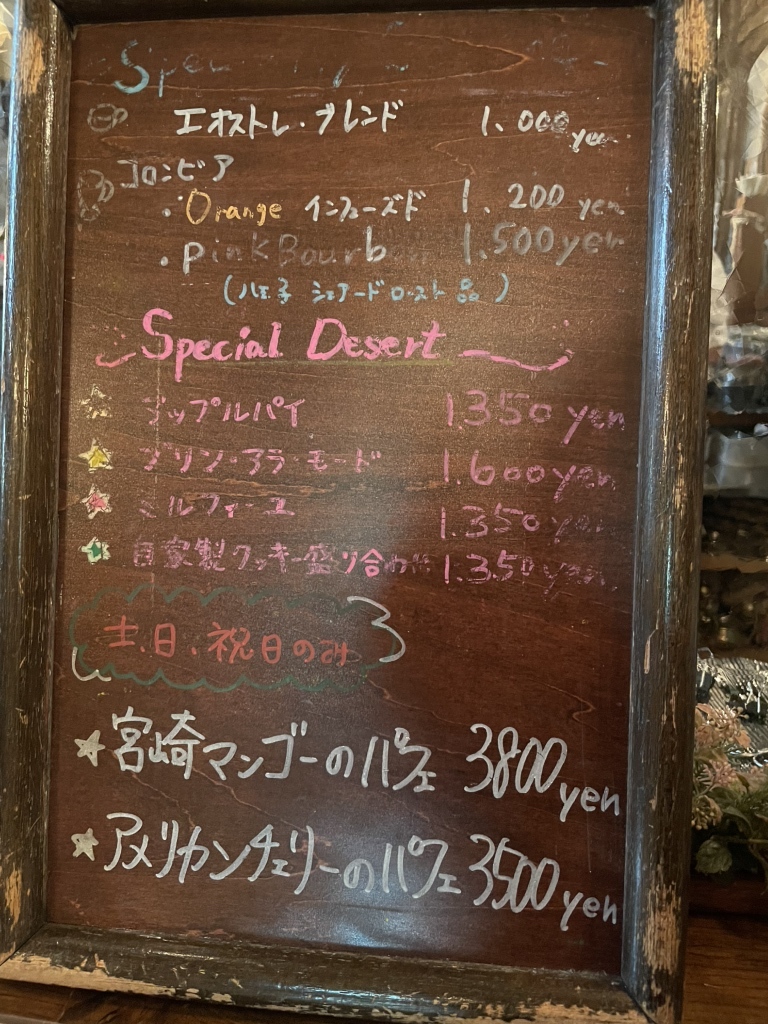 エオストレ・ブレンド 1.000 yen
コロンビア
・Orange インフューズド 1.200 yen
・Pink Bourb 1.500 yen
(八王子 シェアードロースト品)
Special Desert
アップルパイ 1.350 yen
プリン・アラ・モード 1.600 yen
ミルフィーユ 1.350 yen
自家製クッキー盛り合わせ 1.350 yen
土、日、祝日のみ
☆宮崎マンゴーのパフェ 3800 yen
☆アメリカンチェリーのパフェ 3500 yen